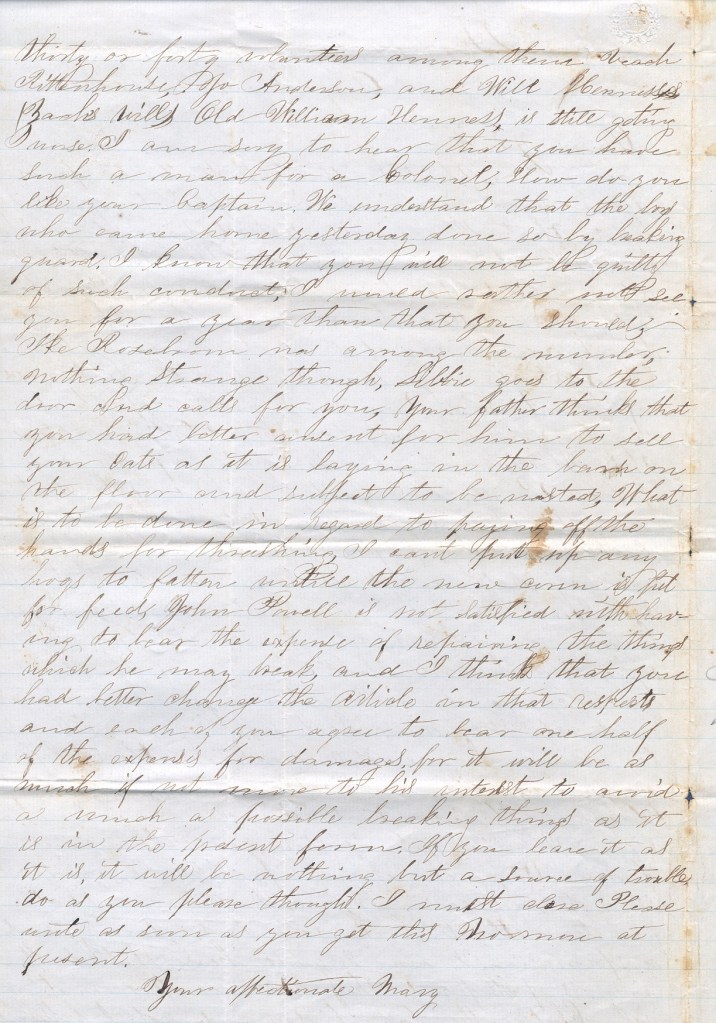 thirty or forty volunteers among them Veach
Rittenhouse, Mo Anderson, and Will Henness
Zachs wills Old William Henness, is still geting
worse. I am sory to hear that you have
such a man for a Colonel, How do you
like your Captain. We understand that the boys
who came home yesterday done so by breaking
guard. I know that you will not be guilty
of such conduct, I would rother not see
you for a year than that you should,
Ike Rosebrom was among the number,
nothing Strange though, Libbie goes to the
door and calls for you, Your father thinks that
you had better consent for him to sell
your Oats as it is laying in the barn on
the floor and subject to be wasted, What
is to be done in regard to paying off the
hands for threshing, I cant put up any
hogs to fatten untill the new corn is fit
for feed, John Powell is not satisfied with hav-
ing to bear the expense of repairing the things
which he may break, and I think that you
had better change the article in that respects
and each of you agree to bear one half
of the expenses for damages, for it will be as
much if not more to his intrest to avoid
a much a possible breaking things as it
is in the present form. If you leave it as
it is, it will be nothing but a source of trouble,
do as you please though. I must close Please
write as soon as you get this No more at
present.
Your affectionate Mary